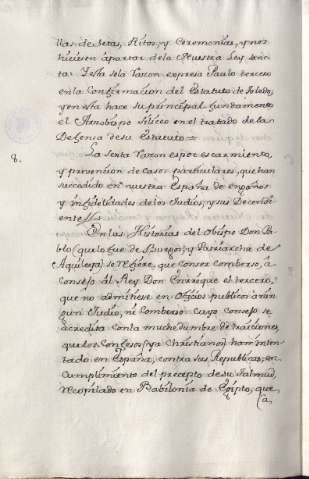 llas de Setas, Ritos, y Ceremonias, y nos
hiciesen apartar de la Nuestra Ley
ta. Esta sola razon expresa Paulo tercero
en la Confirmacion del Estatuto de Toledo,
y en esta hace su principal fundamento
el Arzobispo Siliceo en el tratado de la
Defensa de su Estatuto=
8.
La Sexta razon es por escarmiento,
y prevencion de casos particulares, que han
succedido en nuestra España de engaños
y infidelidades de los Judios, y sus Decendi
entes
En las Historias del Obispo Don Pa-
blo (que lo fue de Burgos) y Patriarcha de
Aquileya) se refiere, que con ser comberso, a
consejo al Rey Don Enrrique el tercero,
que no admitiese en Oficios publicos a nin
gun Judio, ni Comberso cuyo consejo se
acredita con la muchedumbre de traiciones,
que los Confesos (ya Christianos) han inten-
tado en España, contra sus Republicas, en
cumplimiento del precepto de su Talmud,
recopilado en Babilonia de Egipto, que